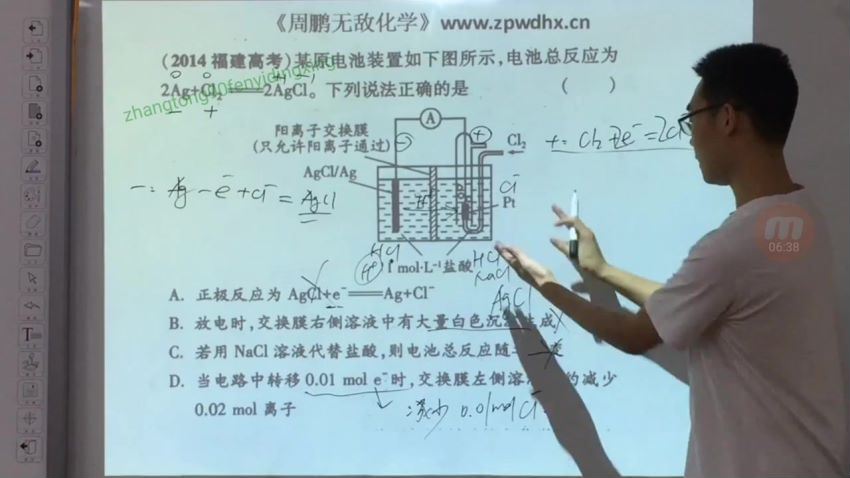 《周鹏无敌化学》www.zpwdhx.cn
(2014福建高考)某原电池装置如下图所示,电池总反应为
2Ag+Cl₂═══2AgCl。下列说法正确的是 ( )
0 0
- +
阳离子交换膜
(只允许阳离子通过)
AgCl/Ag
A
Cl₂
Pt
Cl⁻
H⁺
1 mol·L⁻¹盐酸
-: Ag - e⁻ + Cl⁻ = AgCl
HCl
(H⁺)
HCl
NaCl
AgCl
A. 正极反应为 AgCl+e⁻═══Ag+Cl⁻
B. 放电时,交换膜右侧溶液中有大量白色沉 成
C. 若用 NaCl 溶液代替盐酸,则电池总反应随
D. 当电路中转移 0.01 mol e⁻时,交换膜左侧溶 约减少
0.02 mol 离子
减少 0.01mol Cl⁻
06:38